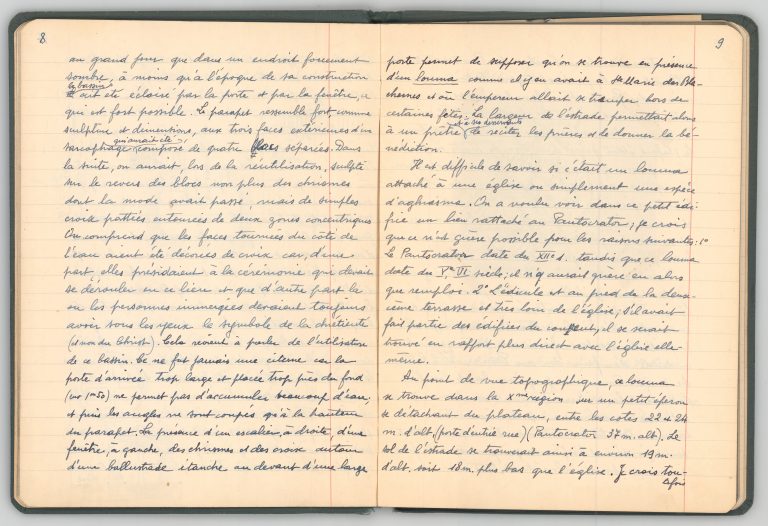 8
au grand jour que dans un endroit forcément
sombre, à moins qu'à l'époque de sa construction
le bassin
ait été éclairé par la porte et par la fenêtre, ce
qui est fort possible. Le parapet ressemble fort, comme
sculpture et dimensions, aux trois faces extérieures d'un
qui aurait été
sarcophage composé de quatre faces séparées. Dans
la suite, on aurait, lors de la réutilisation, sculpté
sur le revers des blocs non plus des chrismes
dont la mode avait passé, mais de simples
croix pattées entourées de deux zones concentriques
On comprend que les faces tournées du côté de
l'eau aient été décorées de croix car, d'une
part, elles présidaient à la cérémonie qui devait
se dérouler en ce lieu et que d'autre part la
ou les personnes immergées devaient toujours
avoir sous les yeux le symbole de la chrétienté
(et non du Christ). Cela revient à parler de l'utilisation
de ce bassin. Ce ne fut jamais une citerne car la
porte d'arrivée trop large et placée trop près du fond
(1m50) ne permet pas d'accumuler beaucoup d'eau,
et puis les angles ne sont coupés qu'à la hauteur
du parapet. La présence d'un escalier, à droite, d'une
fenêtre, à gauche, des chrismes et des croix autour
d'une ballustrade étanche au devant d'une large
9
porte permet de supposer qu'on se trouve en présence
d'un louma comme il y en avait à Ste Marie des Bla-
chernes et où l'empereur allait se tremper lors de
certaines fêtes. La largeur de l'estrade permettait alors
et à ses desservants
à un prêtre de réciter les prières et de donner la bé-
nédiction.
Il est difficile de savoir si c'était un louma
attaché à une église ou simplement une espèce
d'aghiasma. On a voulu voir dans ce petit édi-
fice un lieu rattaché au Pantocrator; je crois
que ce n'est guère possible pour les raisons suivantes: 1°
Le Pantocrator date du XIIe s. tandis que ce louma
date du Ve-VI siècle; il n'y aurait guère eu alors
que remploi. 2° L'édicule est au pied de la deux-
ième terrasse et très loin de l'église; s'il avait
fait partie des édifices du couvent, il se serait
trouvé en rapport plus direct avec l'église elle-
même.
Au point de vue topographique, ce louma
se trouve dans la Xme région sur un petit éperon
se détachant du plateau, entre les cotes 22 et 24
m. d'alt. (porte d'entrée rue) (Pantocrator 37 m. alt). Le
sol de l'estrade se trouverait ainsi à environ 19 m.
d'alt. soit 18 m. plus bas que l'église. Je crois tou-
tefois